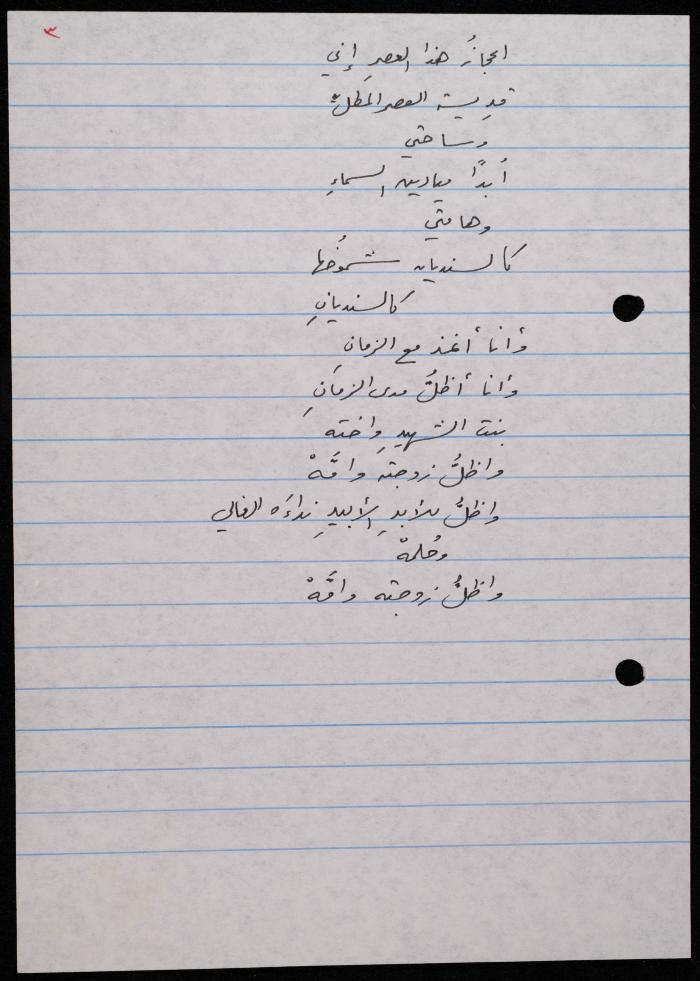 ٣
اعجازُ هذا العصرِ إني
قديسة العصر المطلّ
وساحتي
أبدًا ميادين السماءِ
وهامتي
كالسنديان شموخُها
كالسنديانِ
وأنا أغذ مع الزمان
وأنا أظلُّ مدى الزمانِ
بنت الشهيدِ واخته
واظلُّ زوجته وامَّهْ
واظلُّ للأبدِ الأبيدِ نداءَه الغالي
وحُلمهْ
واظلُّ زوجته وامَّهْ